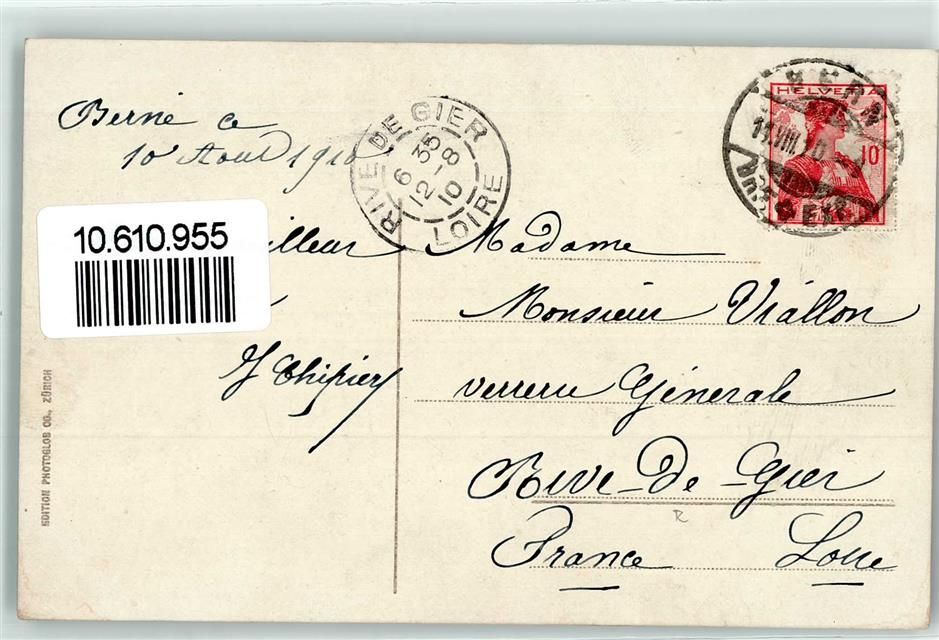 Berne ce
10 Août 1910
RIVE DE GIER
6 35
12-8
10
LOIRE
BERN
HELVETIA
10
10.610.955
illeur
J Thipier
Madame
Monsieur Viallon
verrerie Génerale
Rive-De-Gier
France Loire
EDITION PHOTOGLOB CO., ZÜRICH